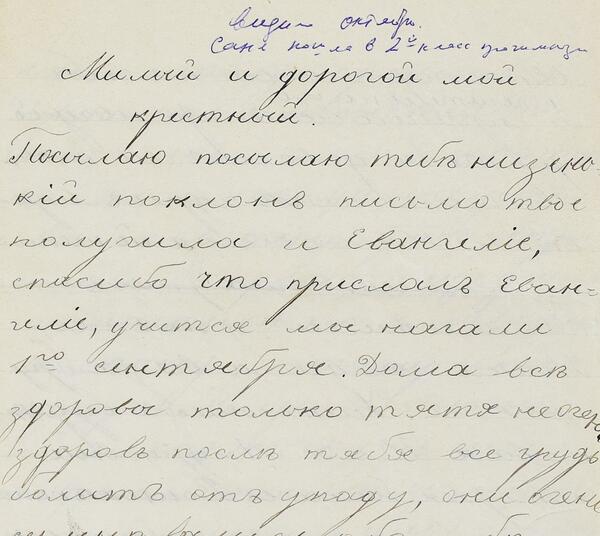 видно октябрь.
Саня пошла в 2й класс прогимнази
Милый и дорогой мой
крестный.
Посылаю посылаю тебѣ низень-
кій поклонъ письмо твое
получила и Евангеліе,
спасибо что прислалъ Еван-
геліе, учится мы начали
1го сентября. Дома всѣ
здоровы только тятя не очень
здоровъ послѣ тябя все грудь
болитъ отъ упаду, они очень